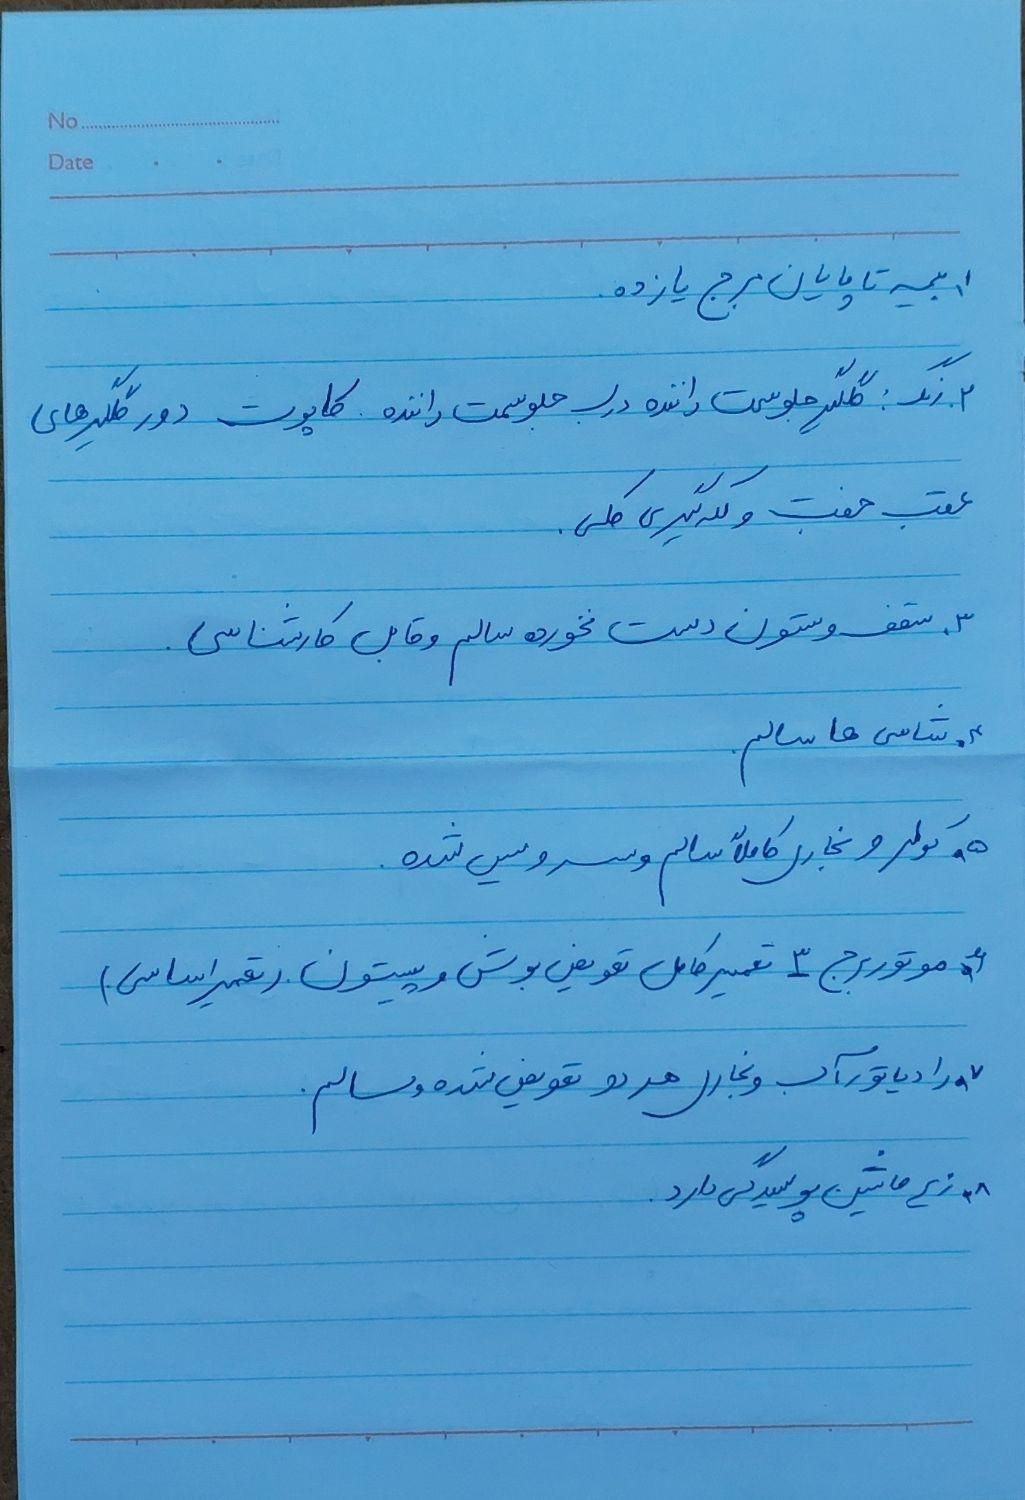 No
Date
۱. بیمه تا پایان برج یازده.
۲. رنگ: گلگیر جلو سمت راننده درب جلو سمت راننده. کاپوت دور گلگیرهای
عقب جفت و لکه‌گیری کلی.
۳. سقف و ستون دست نخورده سالم و قابل کارشناسی.
۴. شاسی ها سالم.
۵. کولر و بخاری کاملاً سالم و سرویس شده.
۶. موتور برج ۳ تعمیر کامل تعویض بوش و پیستون. (تعمیر اساسی)
۷. رادیاتور آب و بخاری هر دو تعویض شده و سالم.
۸. زیر ماشین پوسیدگی دارد.